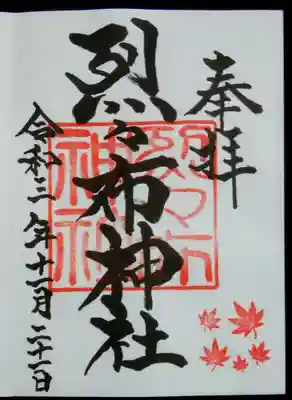 奉拝
烈々布神社
令和三年十一月二十一日
烈々布
神社